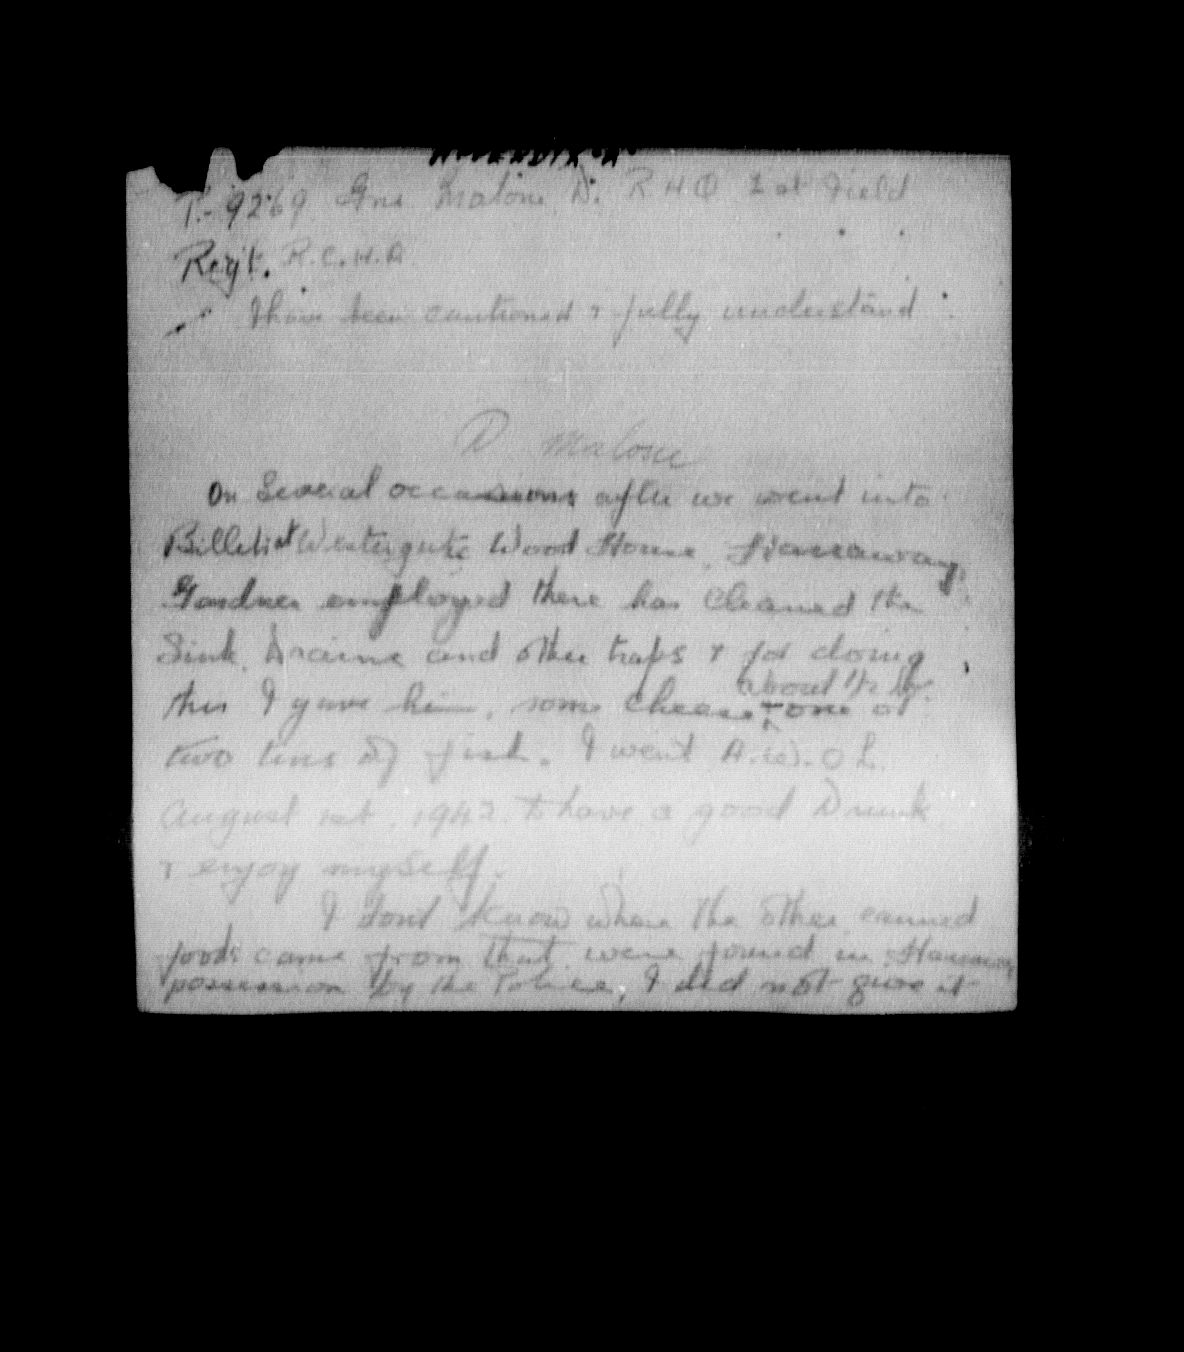 APPENDIX "A"
T.-9269 Gnr Malone, D. R H Q 1st Field
Regt. R.C.H.A.
I have been cautioned & fully understand.
D Malone
On Several occasions after we went into
Billets at Westergate Wood House,
Gardner employed there has Cleaned the
Sink, Drains and other traps & for doing
this I gave him, some cheese, about ½ lb. one or
two tins of fish. I went A.W.O L.
August 1st, 1942. to have a good Drunk
& enjoy myself.
I dont know where the other canned
foods came from that were found in
possession by the Police, I did not give it